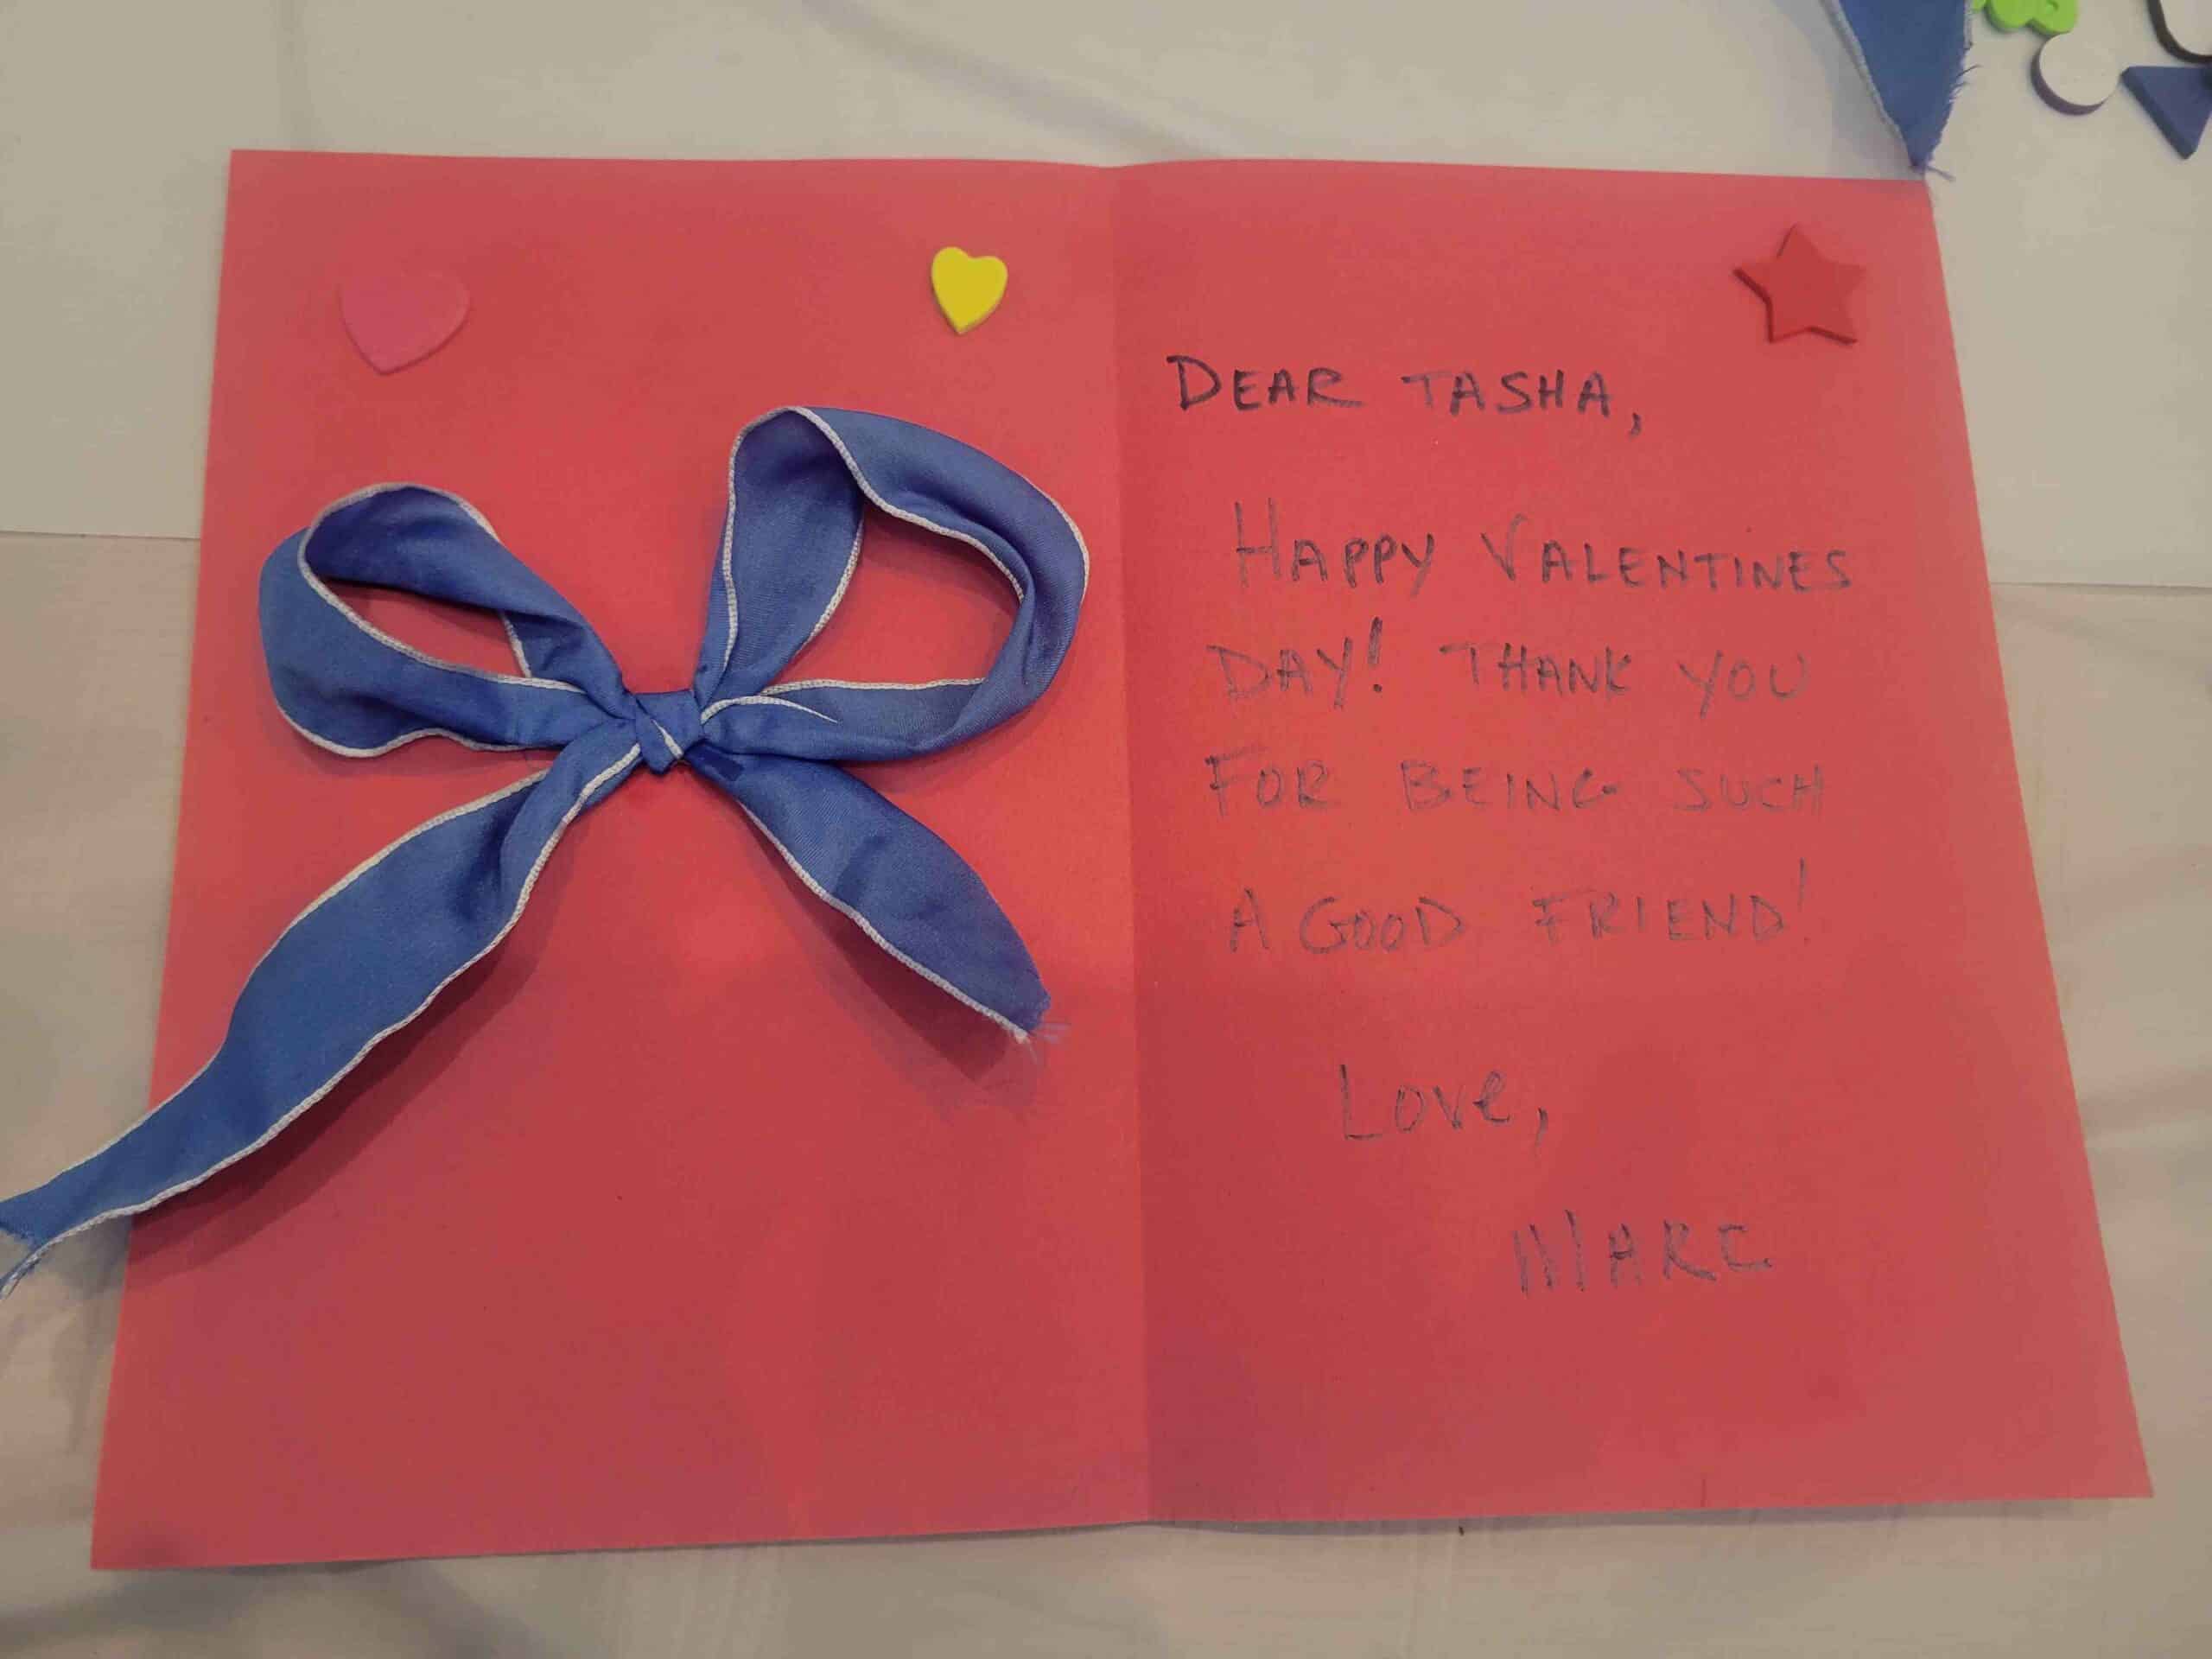 DEAR TASHA,
HAPPY VALENTINES
DAY! THANK YOU
FOR BEING SUCH
A GOOD FRIEND!
Love,
MARC